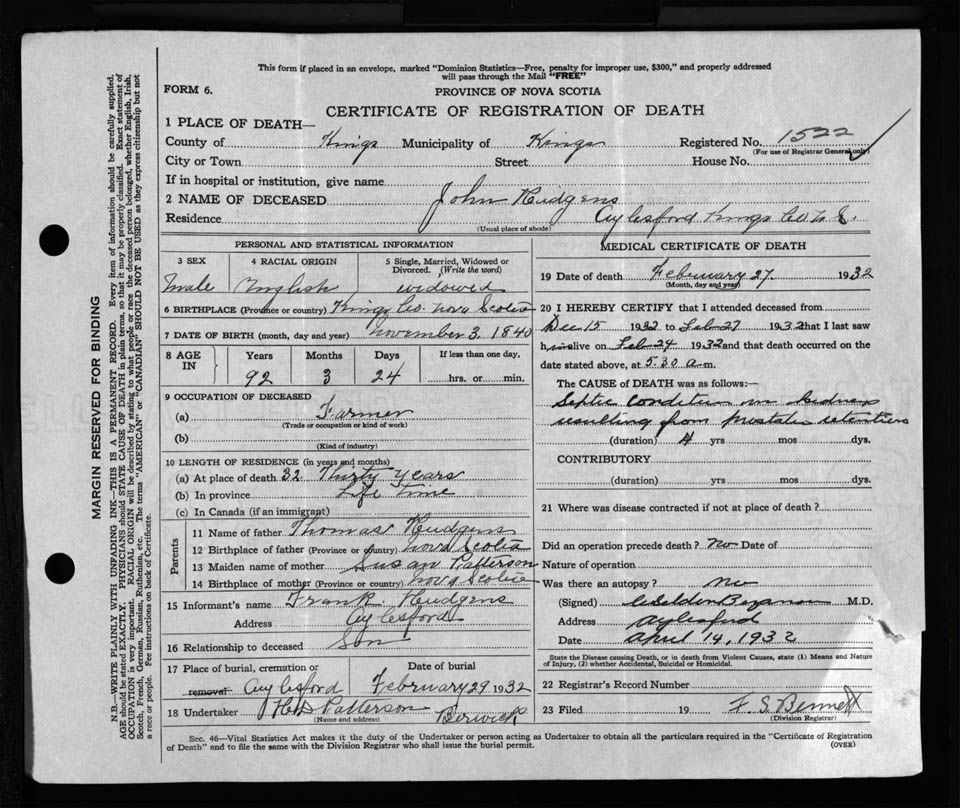 This form if placed in an envelope, marked "Dominion Statistics—Free, penalty for improper use, $300," and properly addressed
will pass through the Mail "FREE"
FORM 6.
PROVINCE OF NOVA SCOTIA
CERTIFICATE OF REGISTRATION OF DEATH
1 PLACE OF DEATH—
County of Kings Municipality of Kings Registered No. 1522
(For use of Registrar General only)
City or Town Street House No.
If in hospital or institution, give name
2 NAME OF DECEASED John Hudgens
Residence Aylesford Kings Co. N.S.
(Usual place of abode)
PERSONAL AND STATISTICAL INFORMATION
3 SEX 4 RACIAL ORIGIN 5 Single, Married, Widowed or
Divorced. (Write the word)
Male English widowed
6 BIRTHPLACE (Province or country) Kings Co. Nova Scotia
7 DATE OF BIRTH (month, day and year) November 3, 1840
8 AGE IN Years Months Days If less than one day,
92 3 24 hrs. or min.
9 OCCUPATION OF DECEASED
(a) Farmer
(Trade or occupation or kind of work)
(b)
(Kind of industry)
10 LENGTH OF RESIDENCE (in years and months)
(a) At place of death 32 Thirty years
(b) In province Life time
(c) In Canada (if an immigrant)
Parents
11 Name of father Thomas Hudgens
12 Birthplace of father (Province or country) Nova Scotia
13 Maiden name of mother Susan Patterson
14 Birthplace of mother (Province or country) Nova Scotia
15 Informant's name Frank Hudgens
Address Aylesford
16 Relationship to deceased Son
17 Place of burial, cremation or removal Date of burial
Aylesford February 29 1932
18 Undertaker Patterson Berwick
(Name and address)
MEDICAL CERTIFICATE OF DEATH
19 Date of death February 27. 1932
(Month, day and year)
20 I HEREBY CERTIFY that I attended deceased from
Dec 15 1932 to Feb 27 1932 that I last saw
him alive on Feb 24 1932 and that death occurred on the
date stated above, at 5.30 a.m.
The CAUSE of DEATH was as follows:—
Septic condition in kidneys
resulting from prostatic retention
(duration) 4 yrs mos dys.
CONTRIBUTORY
(duration) yrs mos dys.
21 Where was disease contracted if not at place of death?
Did an operation precede death? No Date of
Nature of operation
Was there an autopsy? No
(Signed) M.D.
Address Aylesford
Date April 14, 1932
State the Disease causing Death, or in death from Violent Causes, state (1) Means and Nature
of Injury, (2) whether Accidental, Suicidal or Homicidal.
22 Registrar's Record Number
23 Filed 19 F. S. Bennett
(Division Registrar)
Sec. 46—Vital Statistics Act makes it the duty of the Undertaker or person acting as Undertaker to obtain all the particulars required in the "Certificate of Registration
of Death" and to file the same with the Division Registrar who shall issue the burial permit.
(OVER)
MARGIN RESERVED FOR BINDING
N.B.—WRITE PLAINLY WITH UNFADING INK—THIS IS A PERMANENT RECORD. Every item of information should be carefully supplied.
AGE should be stated EXACTLY. PHYSICIANS should STATE CAUSE OF DEATH in plain terms, so that it may be properly classified. Exact statement of
OCCUPATION is very important. RACIAL ORIGIN will be described by stating to what people or race the deceased person belonged, whether English, Irish,
Scotch, French, German, Russian, Ruthenian, etc. The terms "AMERICAN" or "CANADIAN" SHOULD NOT BE USED as they express citizenship but not
a race or people. Fee instructions on back of Certificate.